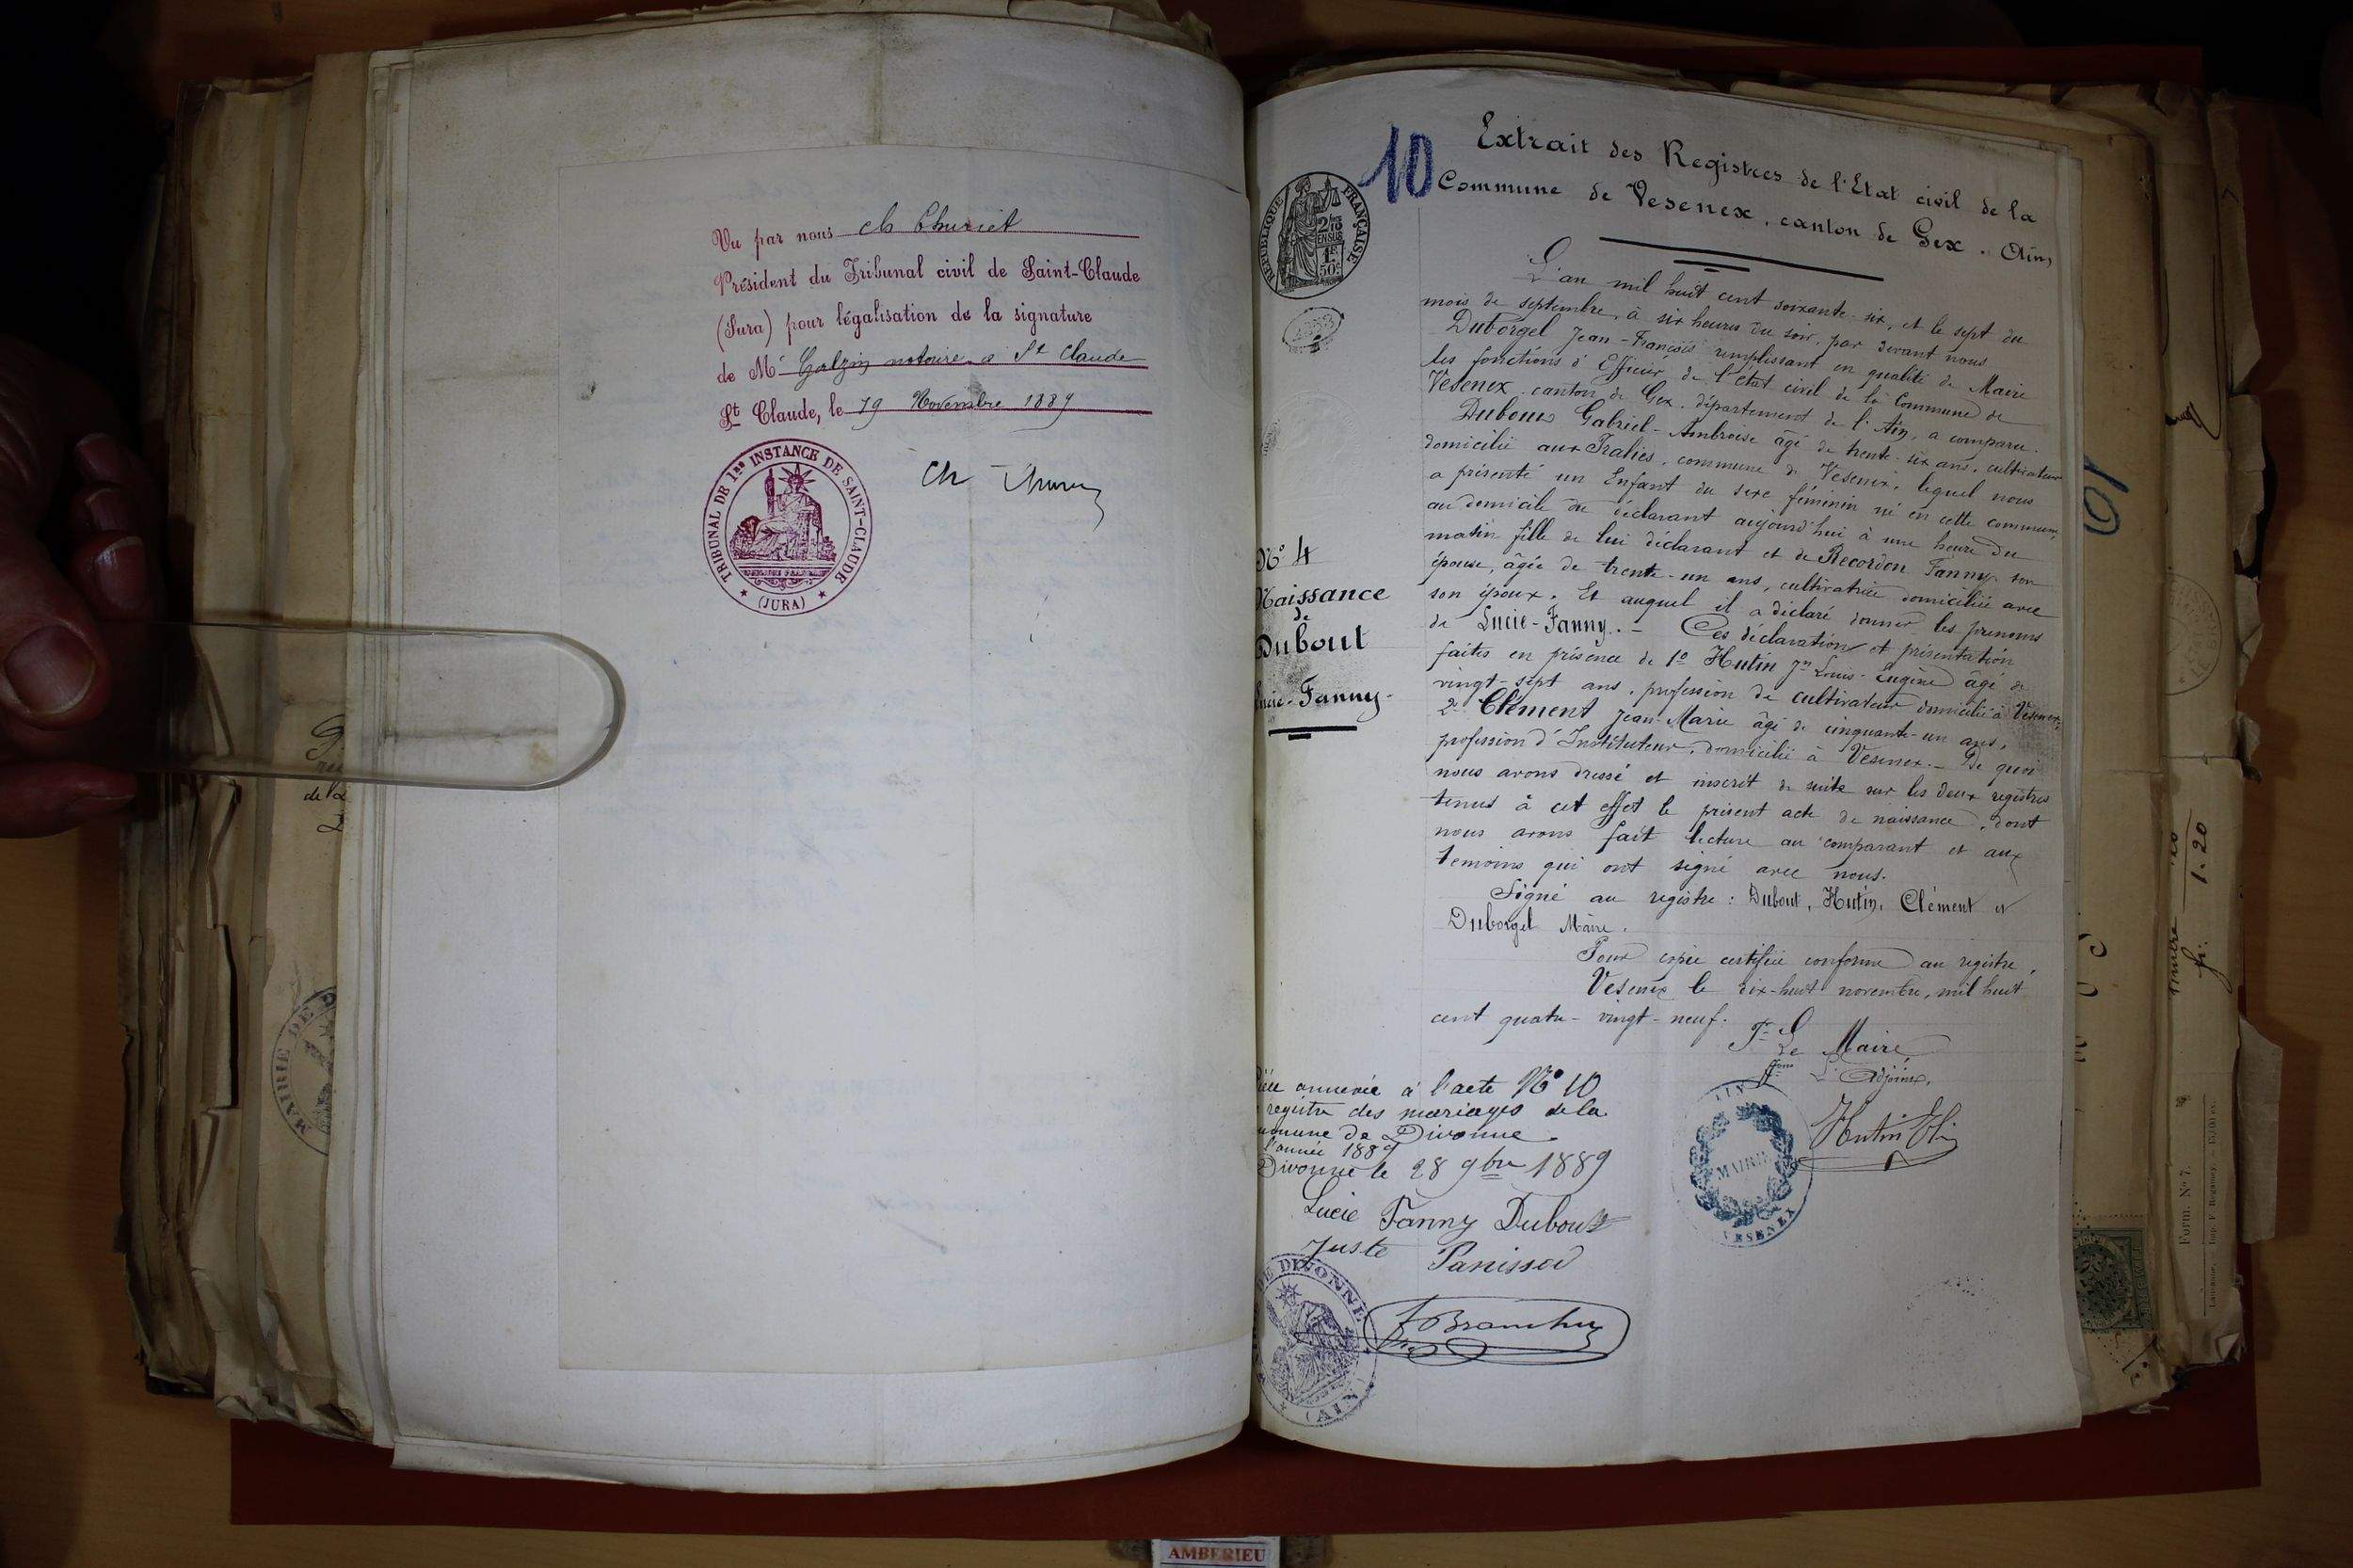 Vu par nous Ch Thuriet
Président du Tribunal civil de Saint-Claude
(Jura) pour légalisation de la signature
de Me notaire a St Claude
St Claude, le 19 Novembre 1889
TRIBUNAL DE 1re INSTANCE DE SAINT-CLAUDE
(JURA)
10
Extrait des Registres de l'Etat civil de la
Commune de Vesenex, canton de Gex. (Ain)
RÉPUBLIQUE FRANÇAISE
2/10
EN SUS
1F
50c
L'an mil huit cent soixante-six, et le sept du
mois de septembre, à six heures du soir, par devant nous
Duborgel Jean-François remplissant en qualité de Maire
les fonctions d'Officier de l'état civil de la Commune de
Vesenex, canton de Gex, département de l'Ain, a comparu
Dubout Gabriel-Ambroise âgé de trente-six ans, cultivateur
domicilié aux Tralies, commune de Vesenex, lequel nous
a présenté un Enfant du sexe féminin né en cette commune,
au domicile du déclarant aujourd'hui à une heure du
matin fille de lui déclarant et de Recordon Fanny son
épouse, âgée de trente-un ans, cultivatrice domiciliée avec
son époux. Et auquel il a déclaré donner les prénoms
de Lucie-Fanny. - Ces déclaration et présentation
faites en présence de 1o Hutin Jn Louis-Eugène âgé de
vingt-sept ans, profession de cultivateur domicilié à Vesenex,
2o Clément Jean-Marie âgé de cinquante-un ans,
profession d'Instituteur, domicilié à Vesenex. - De quoi
nous avons dressé et inscrit de suite sur les deux registres
tenus à cet effet le présent acte de naissance, dont
nous avons fait lecture au comparant et aux
témoins qui ont signé avec nous.
Signé au registre : Dubout, Hutin, Clément et
Duborgel Maire.
Pour copie certifiée conforme au registre,
Vesenex le dix-huit novembre, mil huit
cent quatre-vingt-neuf.
Pr Le Maire
L'Adjoint,
Hutin
N° 4
Naissance
de
Dubout
Lucie-Fanny-
MAIRIE
VESENEX
AIN
annexée à l'acte N° 10
registre des mariages de la
commune de Divonne
l'année 1889
Divonne le 28 9bre 1889
Lucie Fanny Dubout
Juste Panissod
DE DIVONNE
(AIN)
10
MAIRIE DE D
de la
1.20
fr.
Form. N° 7.
AMBERIEU